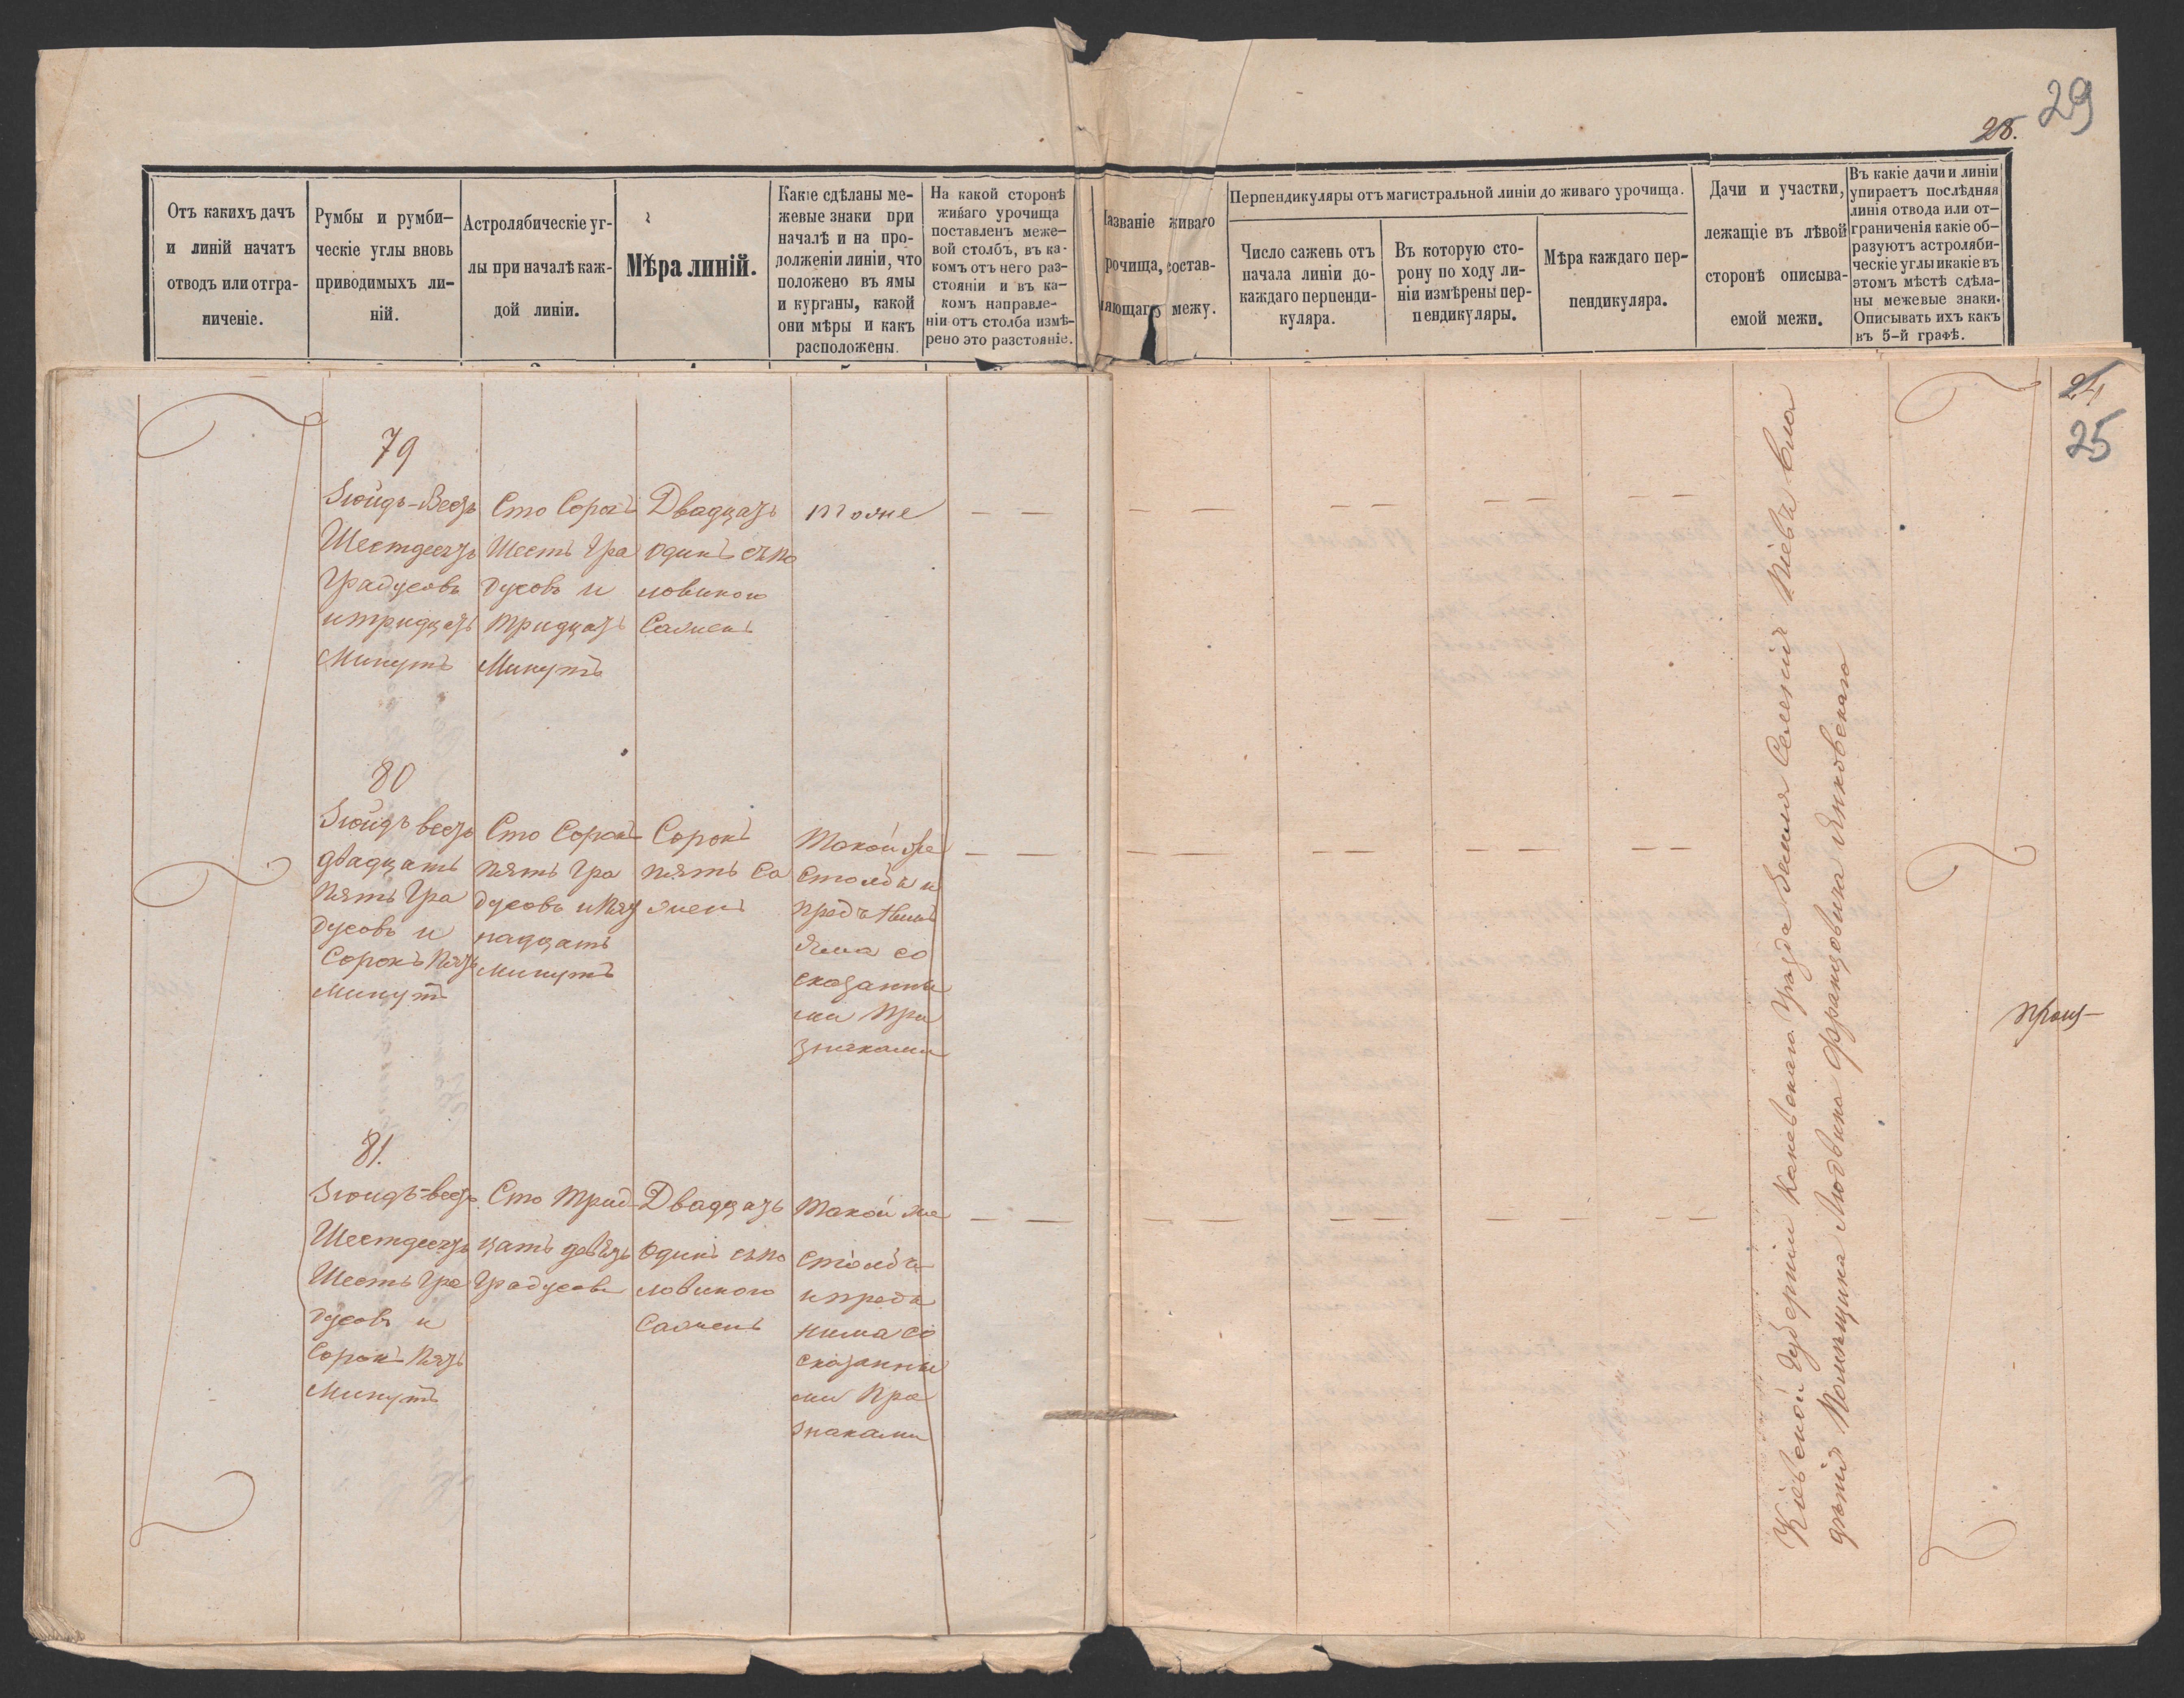 29
28.
Отъ какихъ дачъ
и линій начатъ
отводъ или отгра-
ниченіе.
Румбы и румби-
ческіе углы вновь
приводимыхъ ли-
ній.
Астролябическіе уг-
лы при началѣ каж-
дой линіи.
Мѣра линій.
Какіе сдѣланы ме-
жевые знаки при
началѣ и на про-
долженіи линіи, что
положено въ ямы
и курганы, какой
они мѣры и какъ
расположены.
На какой сторонѣ
живаго урочища
поставленъ меже-
вой столбъ, въ ка-
комъ отъ него раз-
стояніи и въ ка-
комъ направле-
ніи отъ столба измѣ-
рено это разстояніе.
Названіе живаго
урочища, состав-
ляющаго межу.
Перпендикуляры отъ магистральной линіи до живаго урочища.
Число сажень отъ
начала линіи до
каждаго перпенди-
куляра.
Въ которую сто-
рону по ходу ли-
ніи измѣрены пер-
пендикуляры.
Мѣра каждаго пер-
пендикуляра.
Дачи и участки,
лежащіе въ лѣвой
сторонѣ описыва-
емой межи.
Въ какіе дачи и линіи
упираетъ послѣдняя
линія отвода или от-
граниченія какіе об-
разуютъ астроляби-
ческіе углы и какіе въ
этомъ мѣстѣ сдѣла-
ны межевые знаки.
Описывать ихъ какъ
въ 5-й графѣ.
24
25
79
Зюйдъ-Вестъ
Шестдесятъ
Градусовъ
и тридцать
Минутъ
Сто Сорокъ
Шесть Гра
дусовъ и
тридцать
Минутъ
Двадцать
одинъ съ по
ловиною
Сажень
тоже
80
Зюйдъ вестъ
двадцать
пять Гра
дусовъ и
Сорокъ пять
минутъ
Сто Сорокъ
пять Гра
дусовъ и пят
надцать
минутъ
Сорокъ
пять Са
жень
Такой же
столбъ и
предъ нимъ
яма со
сказанны
ми при
знаками
81.
Зюйдъ-вестъ
Шестдесятъ
Шесть Гра
дусовъ и
Сорокъ пять
Минутъ
Сто Трид
цать девять
Градусовъ
Двадцать
одинъ съ по
ловиною
Сажень
Такой же
столбъ
и предъ
нима со
сказанны
ми при
знаками
Кіевской Губерніи Каневскаго Уѣзда Земля Селенія Кіевъ вла
дѣнія Помѣщика Людвика Францовича Янковскаго